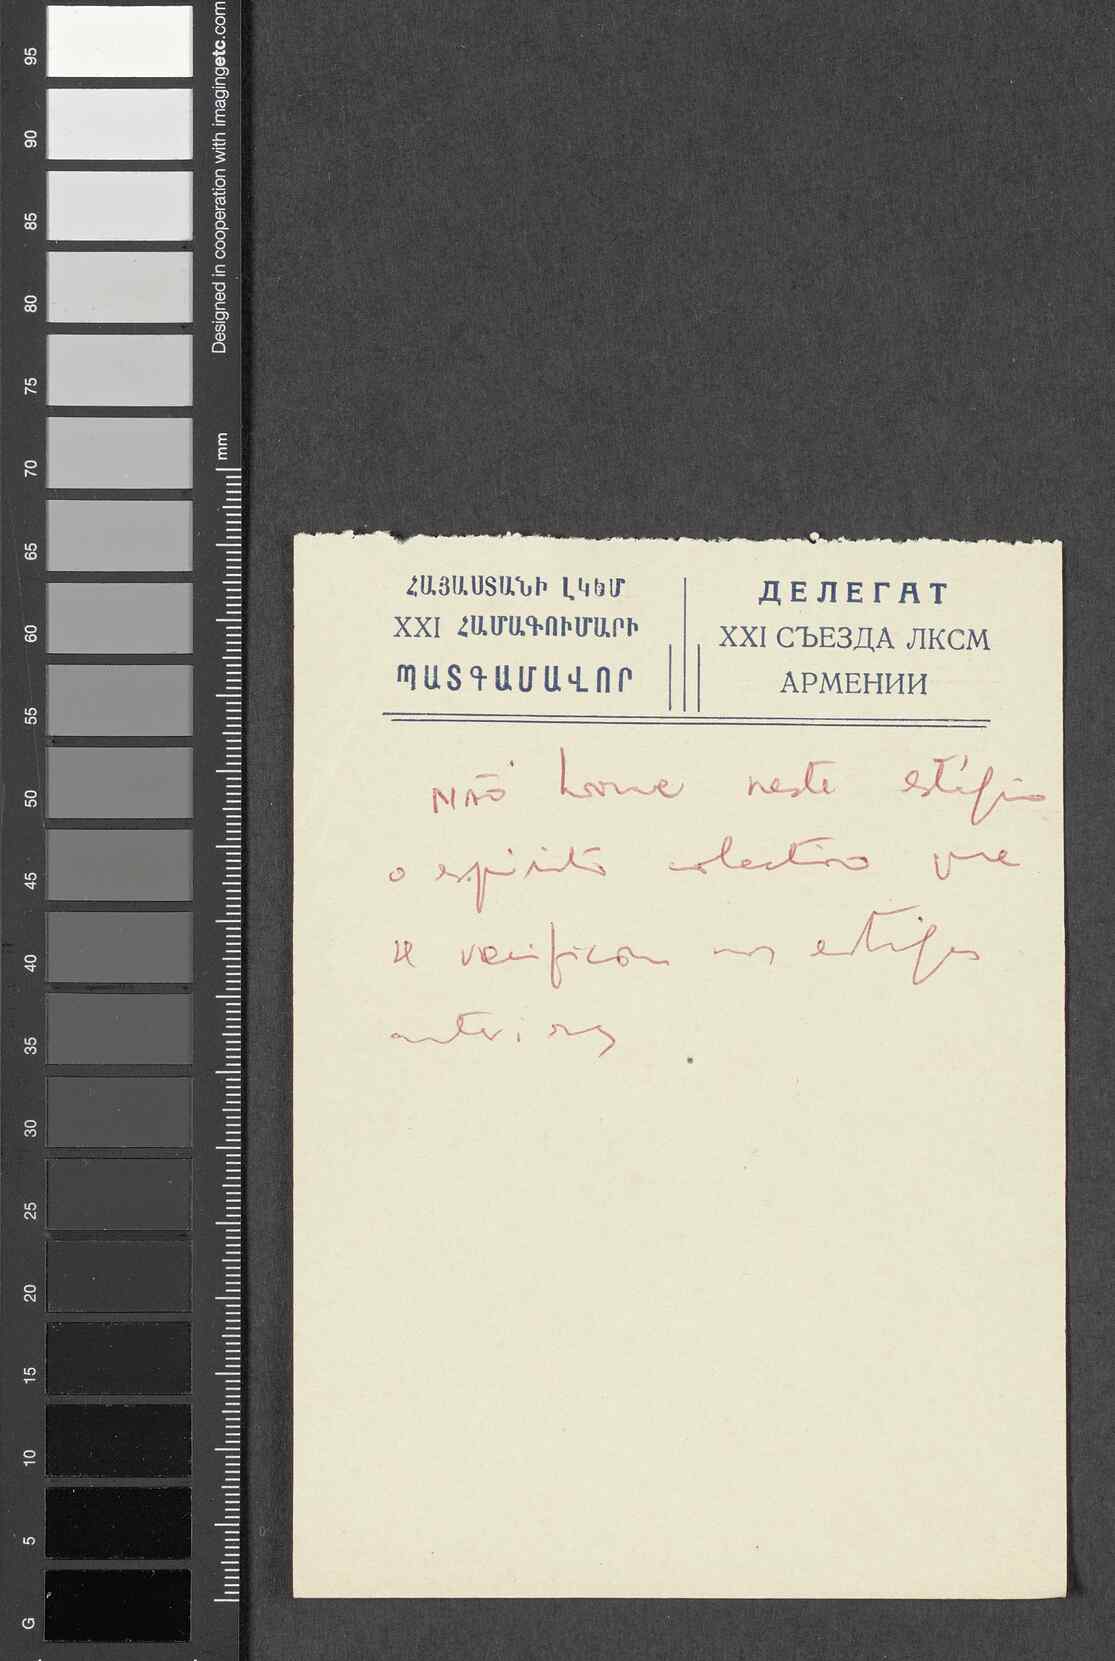 ՀԱՅԱՍՏԱՆԻ ԼԿԵՄ
XXI ՀԱՄԱԳՈՒՄԱՐԻ
ՊԱՏԳԱՄԱՎՈՐ
ДЕЛЕГАТ
XXI СЪЕЗДА ЛКСМ
АРМЕНИИ
NÃO houve neste estágio
o espírito colectivo que
se verificou nos estágios
anteriores
Designed in cooperation with imagingetc.com
mm
95
90
85
80
75
70
65
60
55
50
45
40
35
30
25
20
15
10
5
G